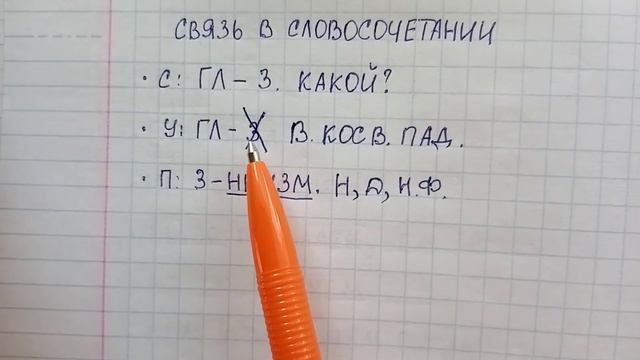 СВЯЗЬ В СЛОВОСОЧЕТАНИИ
· С: ГЛ – З. КАКОЙ?
· У: ГЛ – З В. КОСВ. ПАД.
· П: З – НЕИЗМ. Н, Д, Н.Ф.